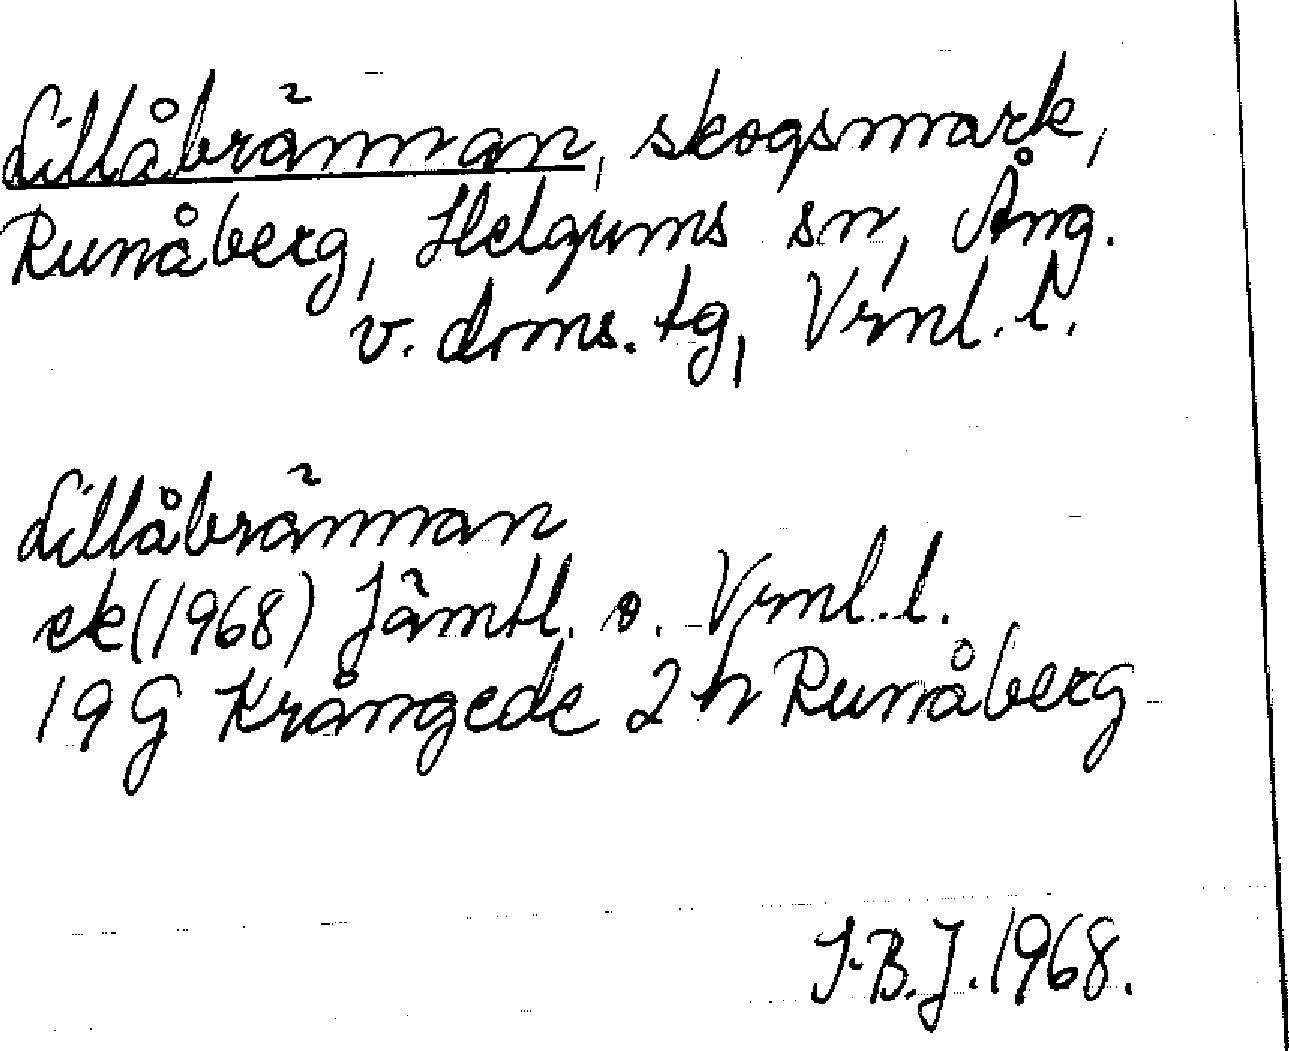 Lillåbrännan, skogsmark,
Runåberg, Helgums sn, Ång.
v. doms. tg, Vrnl. l.
Lillåbrännan
ek (1968) Jämtl. o. Vrnl. l.
19 G Krångede 2 h Runåberg
I.B.J. 1968.